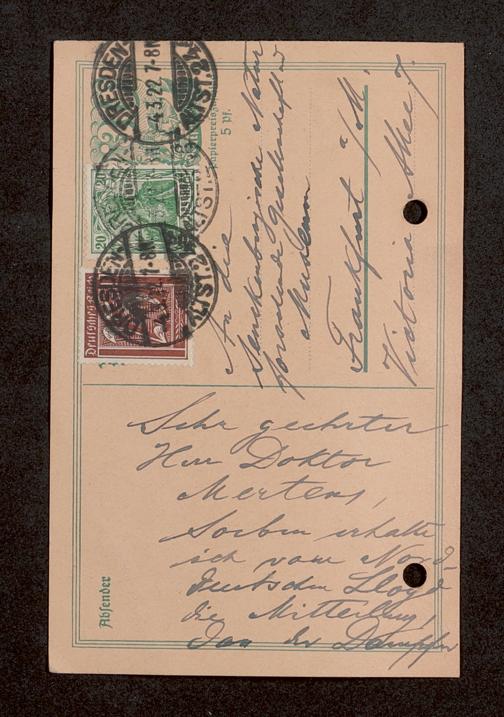 DRESDEN-ALTST. 24
-4.3.22. 7-8N
5 Pf.
20
Deutsches Reich
An die
Senckenbergische Natur
forschende Gesellschaft
Museum
Frankfurt a/M.
Victoria Allee 7.
Sehr geehrter
Herr Doktor
Mertens,
Soeben erhalte
ich vom Nord-
deutschen Lloyd
die Mitteilung,
das der Dampfer
Absender